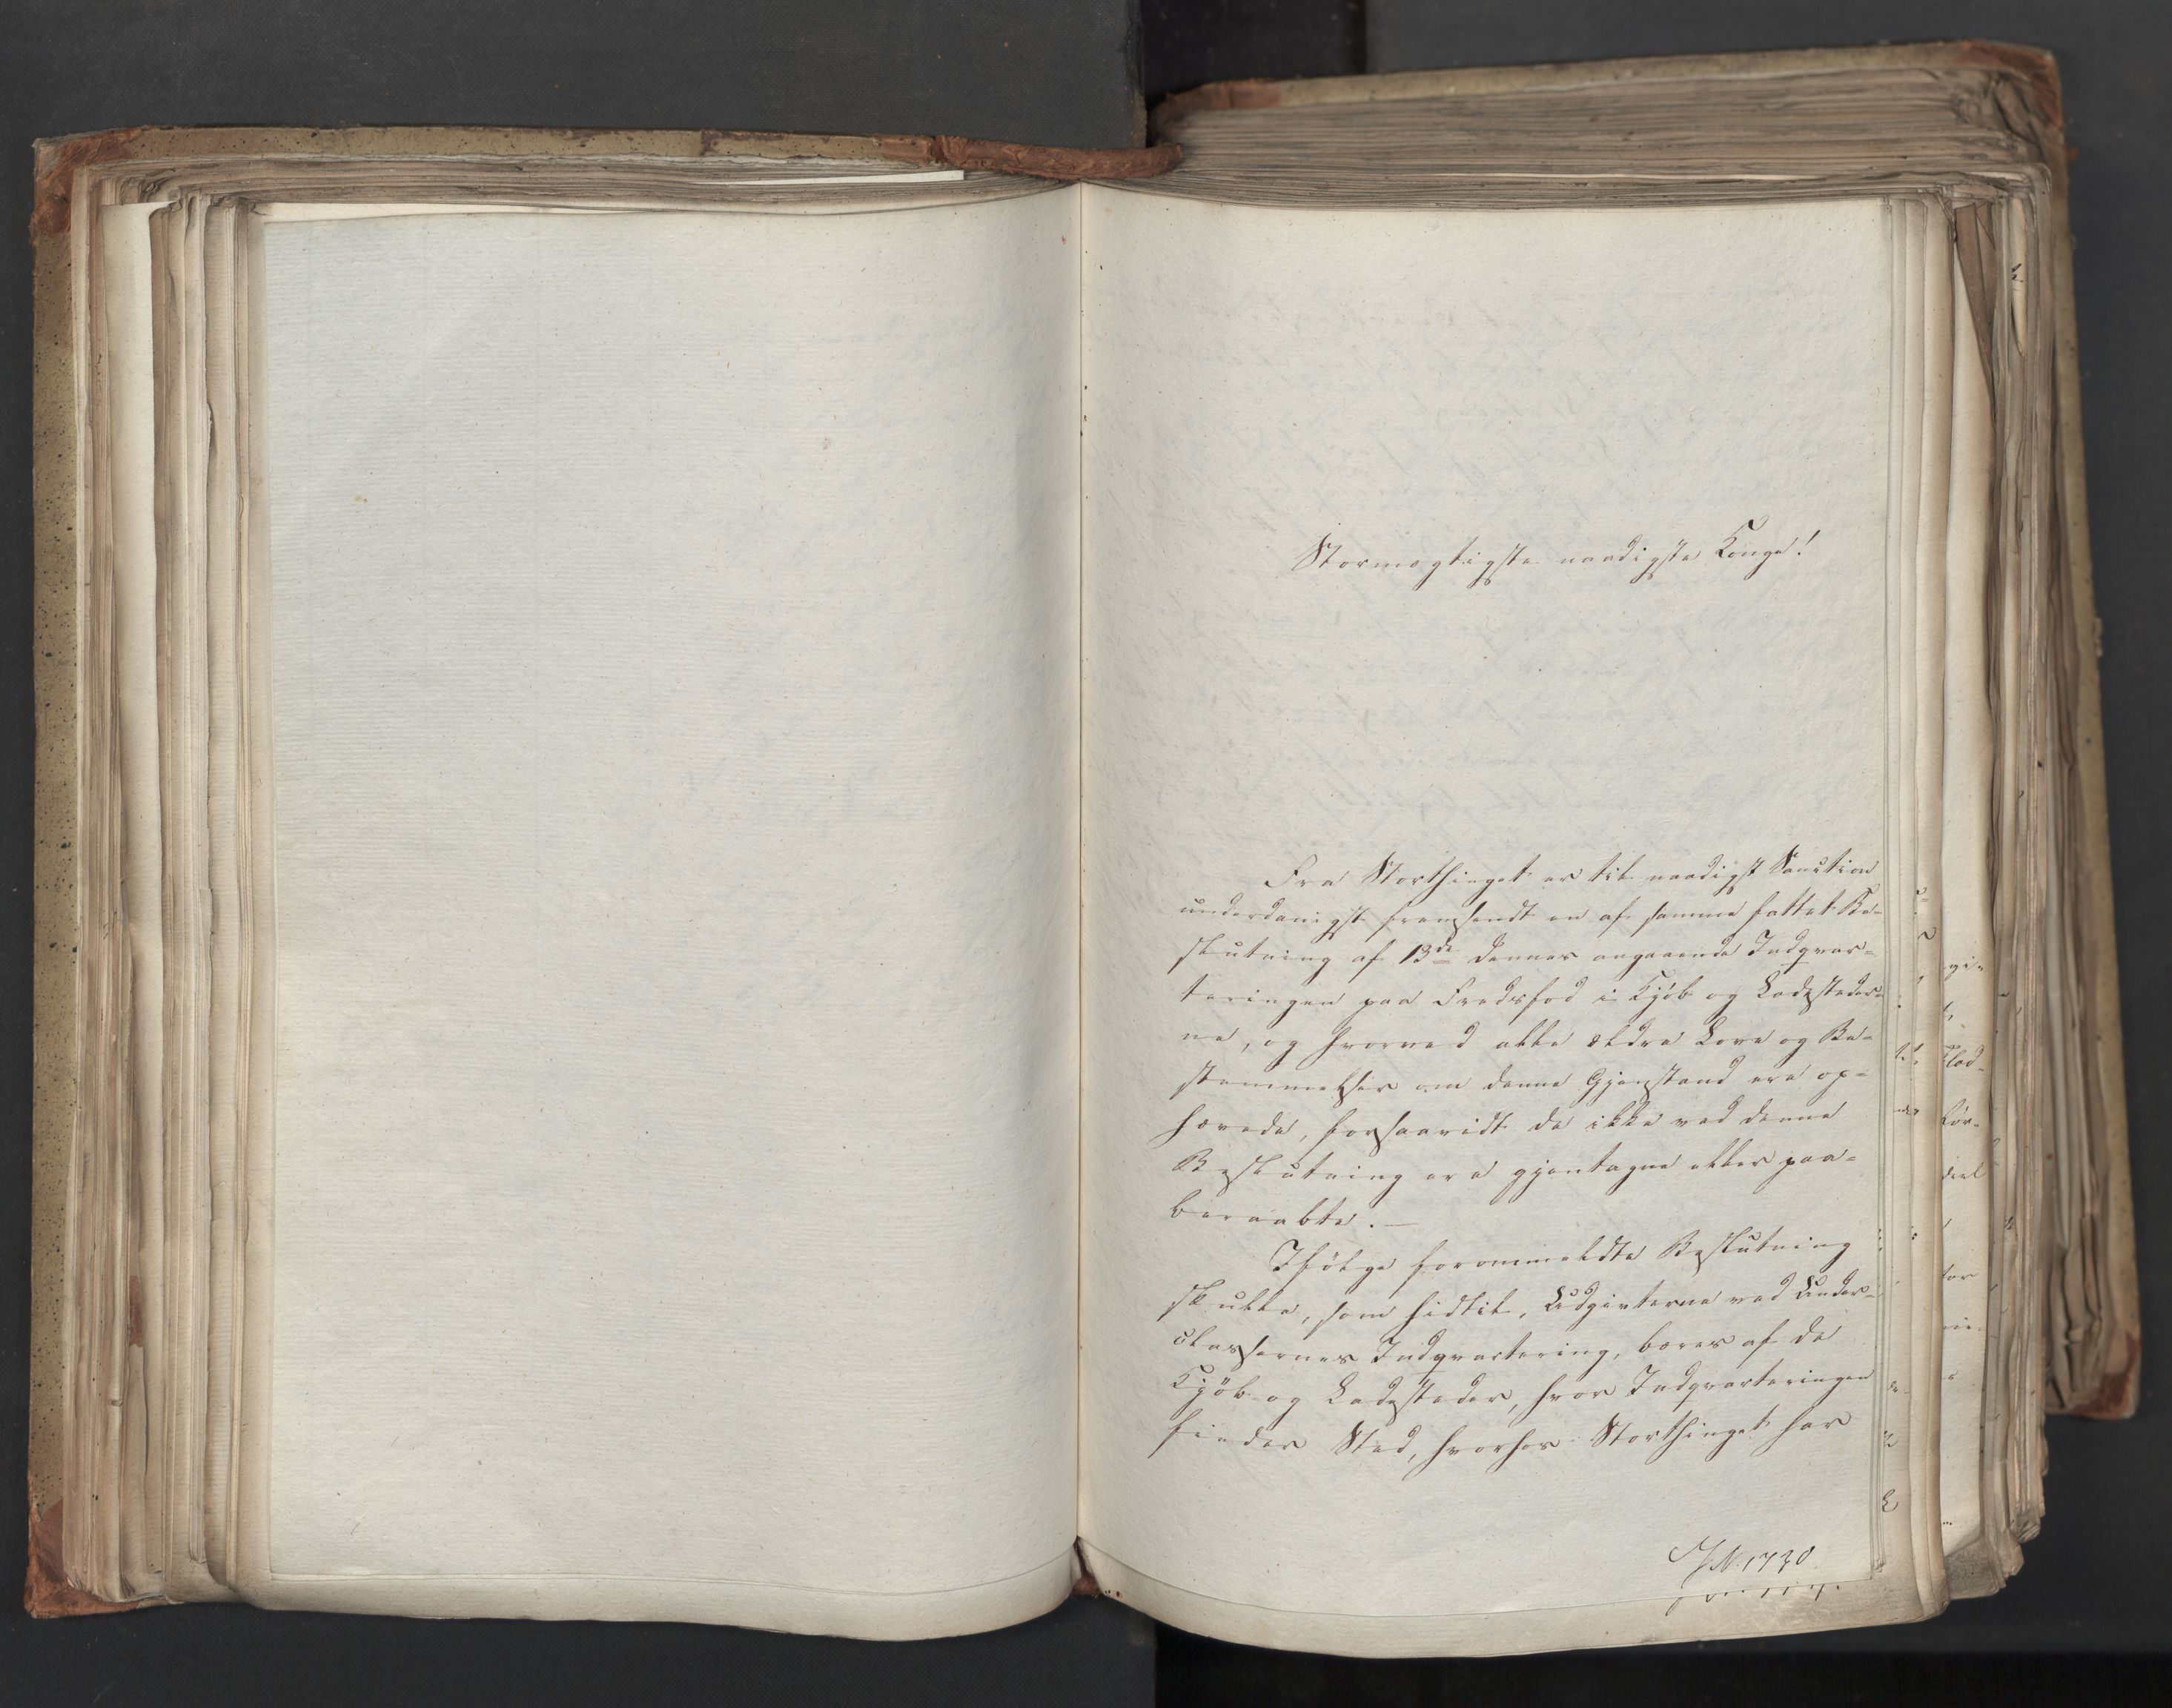 Stormægtigste naadigste Konge!
Fra Storthinget er til naadigst Sanction
underdanigst fremsendt en af samme fattet Be-
slutning af 13de dennes angaaende Indqvar-
teringen paa Fredsfod i Kjöb og Ladesteder-
ne, og hvorved alle ældre Love og Be-
stemmelser om denne Gjenstand ere op-
hævede, forsaavidt de ikke ved denne
Beslutning ere gjentagne eller paa-
beraabte. —
Ifölge forommeldte Beslutning
skulle, som hidtil, Udgivterne ved Under-
classernes Indqvartering, bæres af de
Kjöb og Ladesteder, hvor Indqvarteringen
finder Sted, hvorhos Storthinget har
J.N. 1730